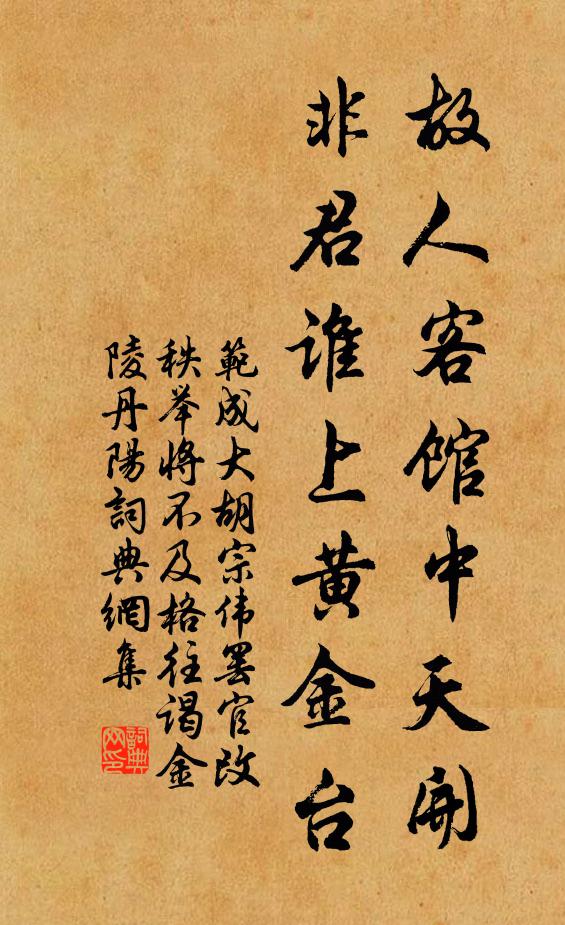 故人客馆中天開
非君谁上黄金台
範成大胡宗伟罢官改
秩举将不及格往谒金
陵丹陽詞典網集
詞典网印